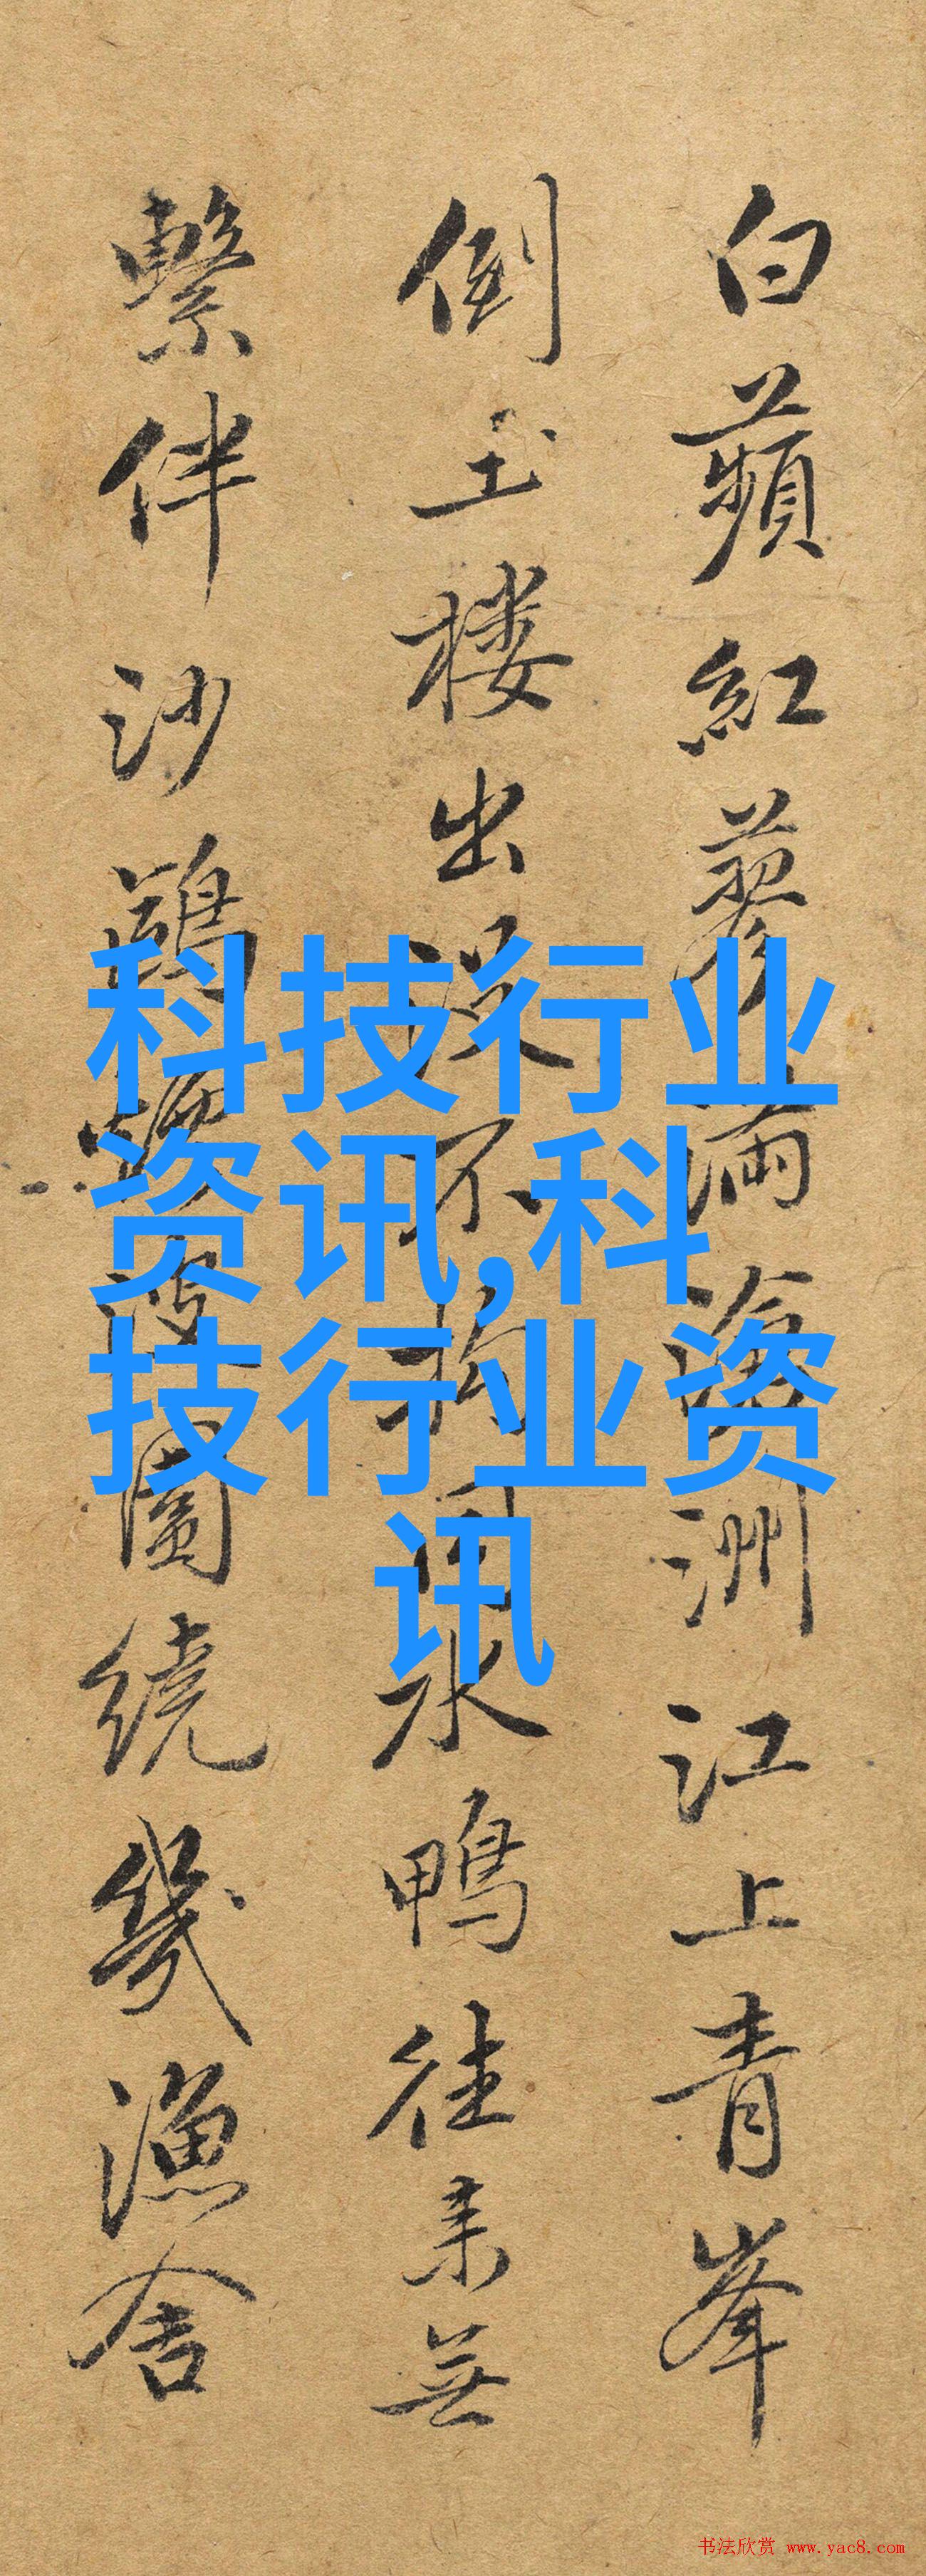 白蘋紅蓼滿滄洲江上青峯
倒玉楼出没不拘同水鴨往来無
繫伴沙鷗
圍繞幾漁舍
科技行业
资讯,科
技行业资
讯
书法欣赏 www.yac8.com